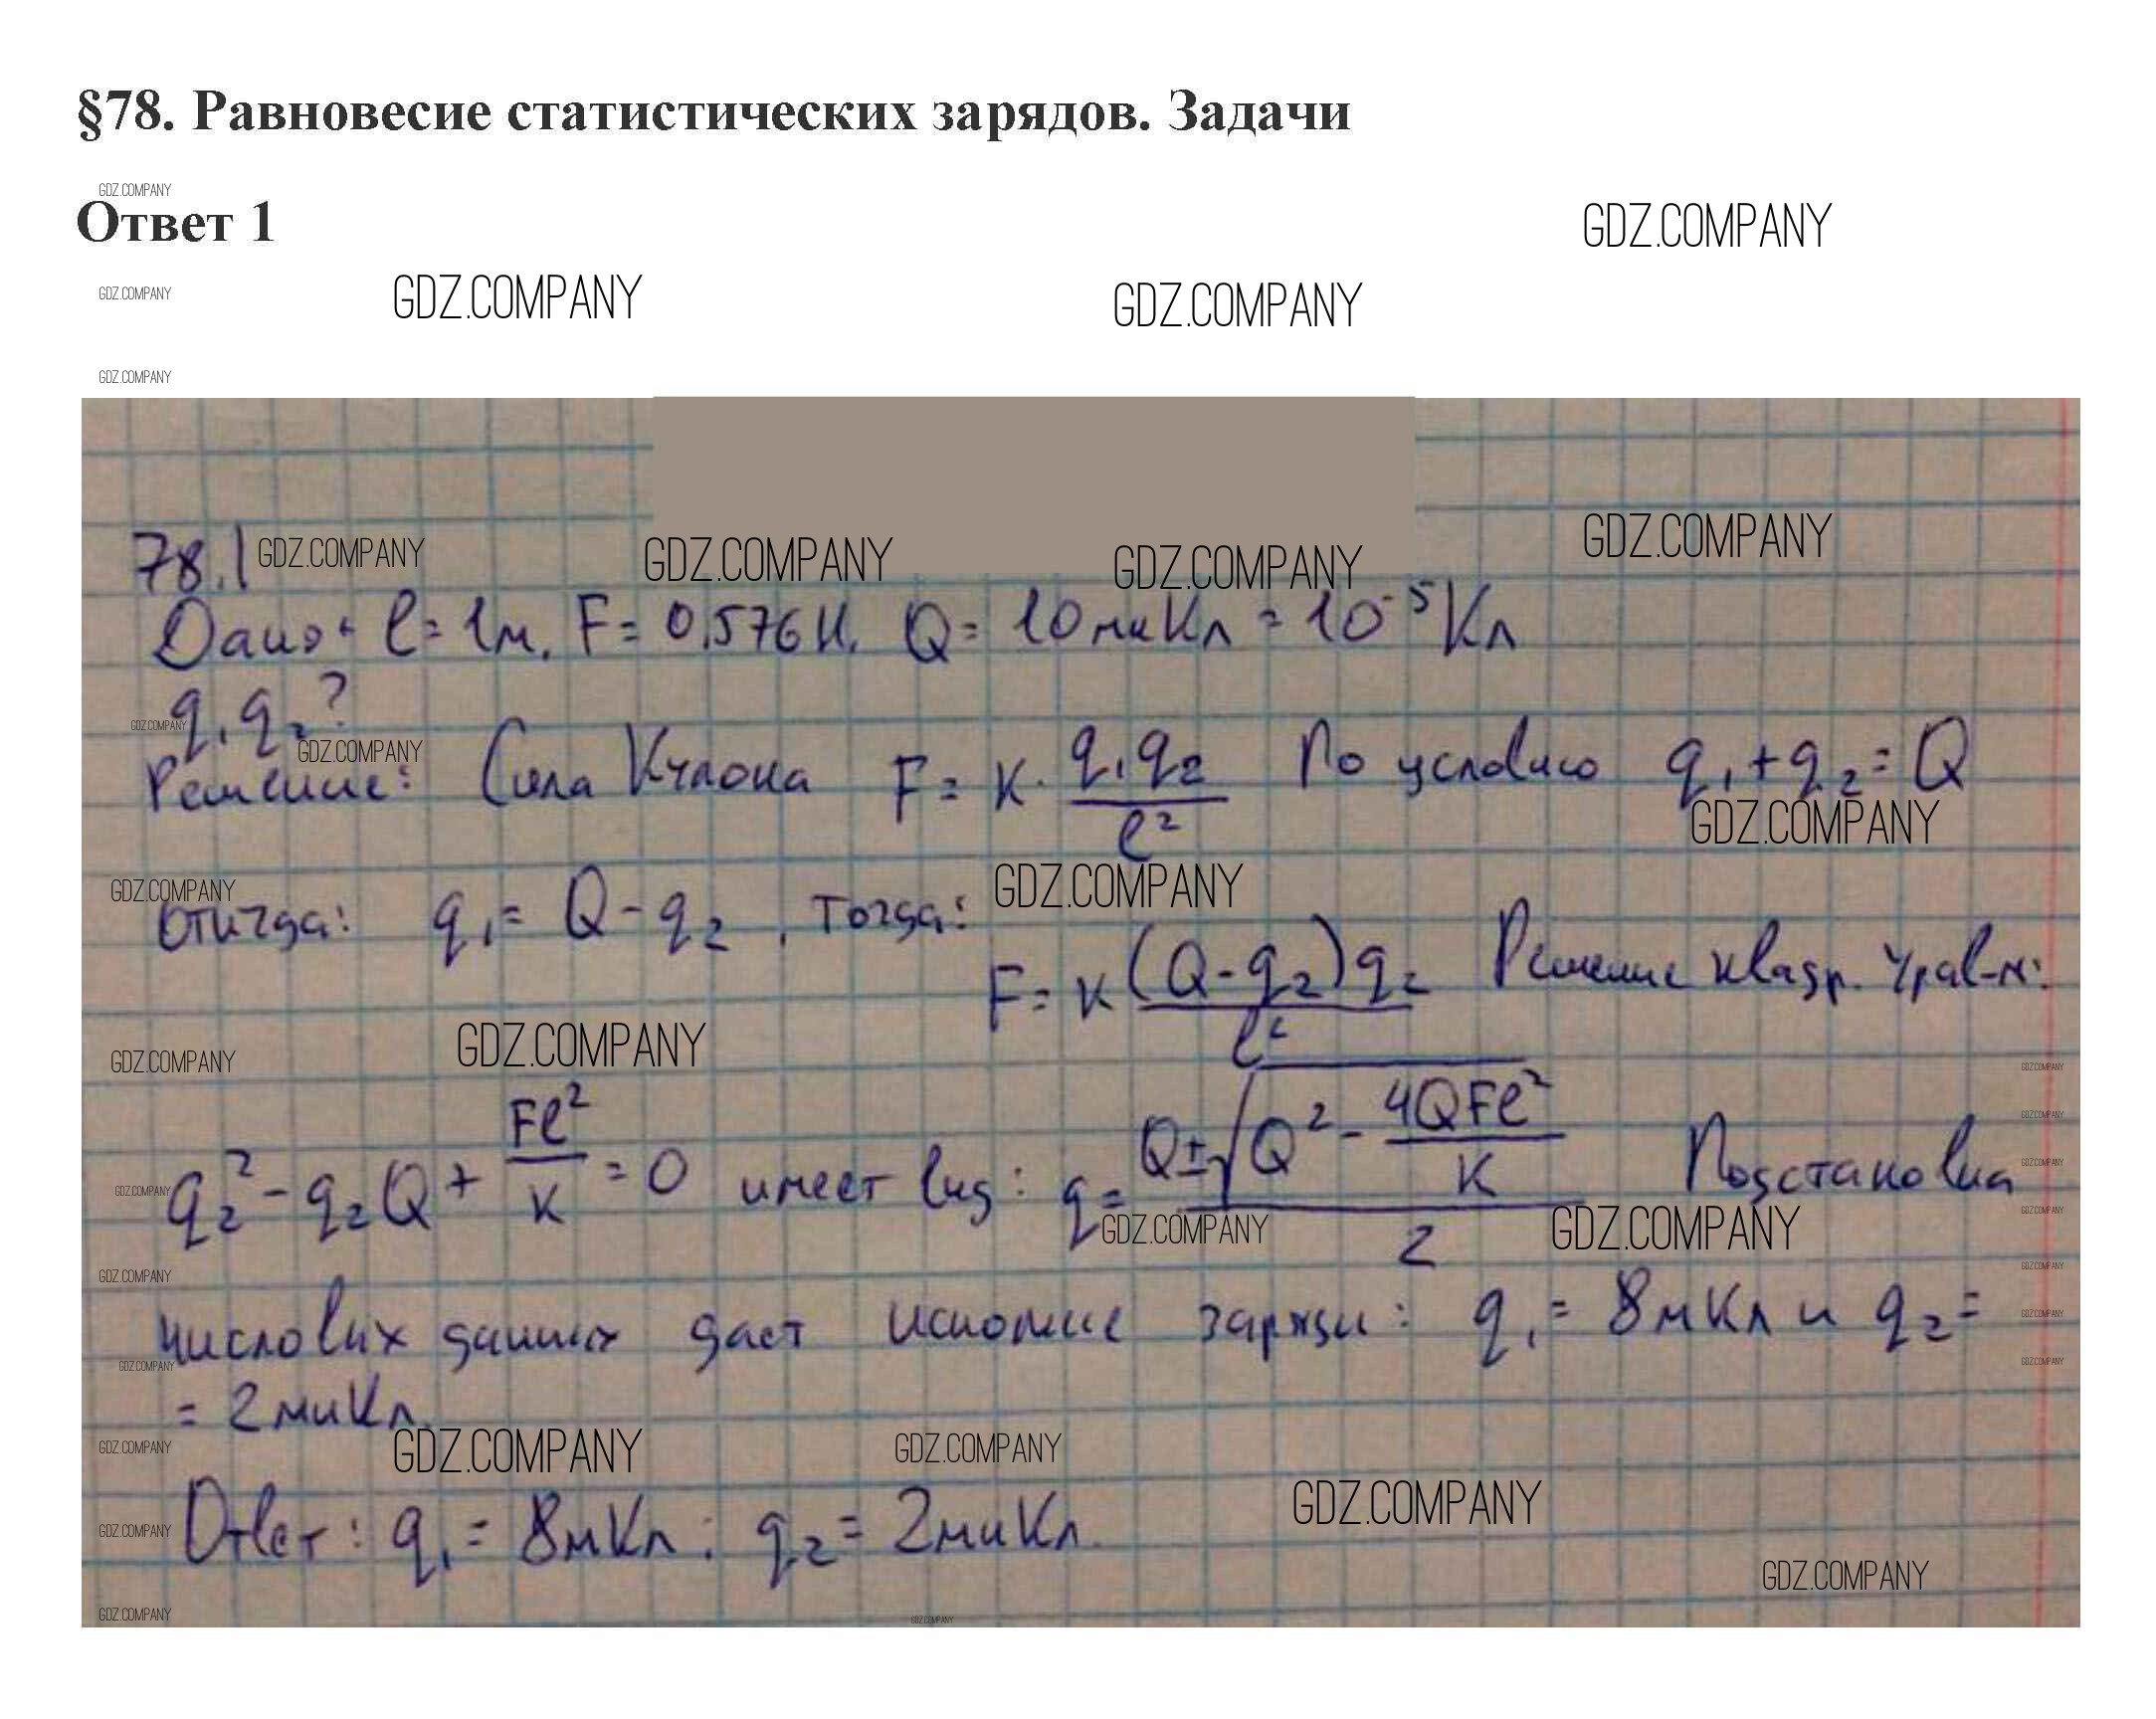 §78. Равновесие статистических зарядов. Задачи
GDZ.COMPANY
Ответ 1
GDZ.COMPANY
GDZ.COMPANY
GDZ.COMPANY
GDZ.COMPANY
GDZ.COMPANY
78.1 GDZ.COMPANY GDZ.COMPANY GDZ.COMPANY GDZ.COMPANY
Дано: l = 1м. F = 0,576 Н. Q = 10 мкКл = 10⁻⁵ Кл
q₁ q₂ ?
GDZ.COMPANY GDZ.COMPANY
Решение: Сила Кулона F = к · q₁q₂ / l² По условию q₁ + q₂ = Q
GDZ.COMPANY
GDZ.COMPANY GDZ.COMPANY
Откуда: q₁ = Q - q₂, тогда:
F = к (Q - q₂) q₂ / l² Решение квадр. урав-я:
GDZ.COMPANY GDZ.COMPANY GDZ.COMPANY
q₂² - q₂Q + Fl² / к = 0 имеет вид: q = (Q ± √(Q² - 4QFl² / к)) / 2 Подстановка
GDZ.COMPANY GDZ.COMPANY GDZ.COMPANY
GDZ.COMPANY
числовых данных дает искомые заряды: q₁ = 8мКл и q₂ =
GDZ.COMPANY
= 2 мкКл.
GDZ.COMPANY GDZ.COMPANY GDZ.COMPANY
GDZ.COMPANY GDZ.COMPANY
Ответ: q₁ = 8мКл; q₂ = 2мкКл.
GDZ.COMPANY
GDZ.COMPANY GDZ.COMPANY